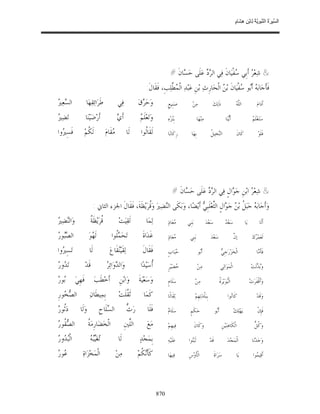 السِّيرَةُ النَّبَوِيَّةُ لِابْنِ هِشَامٍ
شِعْرُ أَبِي سُفْيَانَ فِي الرَّدِّ عَلَى حَسَّانَ #
فَأَجَابَهُ أَبُو سُفْيَانَ بْنُ الْحَارِثِ بْنِ عَبْدِ الْمُطَّلِبِ، فَقَالَ:
أَدَامَ اللَّهُ ذَلِكَ مِنْ صَنِيعٍ وَحَرَّقَ فِي طَرَائِقِهَا السَّعِيرُ
سَتَعْلَمُ أَيُّنَا مِنْهَا بِنُزْهٍ وَتَعْلَمُ أَيُّ أَرْضَيْنَا تَضِيرُ
فَلَوْ كَانَ النَّخِيلُ بِهَا رِكَابًا لَقَالُوا لَا مُقَامَ لَكُمْ فَسِيرُوا
شِعْرُ ابْنِ جَوَّالٍ فِي الرَّدِّ عَلَى حَسَّانَ #
وَأَجَابَهُ جَبَلُ بْنُ جَوَّالٍ الثَّعْلَبِيُّ أَيْضًا، وَبَكَى النَّضِيرَ وَقُرَيْظَةَ، فَقَالَ الجزء الثاني
أَلَا يَا سَعْدُ سَعْدَ بَنِي مُعَاذٍ لِمَا لَقِيَتْ قُرَيْظَةُ وَالنَّضِيرُ
لَعَمْرُكَ إِنَّ سَعْدَ بَنِي مُعَاذٍ غَدَاةَ تَحَمَّلُوا لَهُوَ الصَّبُورُ
فَأَمَّا الْخَزْرَجِيُّ أَبُو حُبَابٍ فَقَالَ لِقَيْنُقَاعَ لَا تَسِيرُوا
وَبُدِّلَتْ الْمَوَالِي مِنْ حُضَيْرٍ أُسَيْدًا وَالدَّوَائِرُ قَدْ تَدُورُ
وَأَقْفَرَتْ الْبُوَيْرَةُ مِنْ سَلَامٍ وَسَعْيَةَ وَابْنِ أَخْطَبَ فَهِيَ بُورُ
وَقَدْ كَانُوا بِبَلْدَتِهِمْ ثِقَالًا كَمَا ثَقُلَتْ بِمِيطَانِ الصُّخُورُ
فَإِنْ يَهْلِكْ أَبُو حَكَمٍ سَلَامٌ فَلَا رَثُّ السِّلَاحِ وَلَا دَثُورُ
وَكُلُّ الْكَاهِنَيْنِ وَكَانَ فِيهِمْ مَعَ اللِّينِ الْخَضَارِمَةُ الصُّقُورُ
وَجَدْنَا الْمَجْدَ قَدْ ثَبَتُوا عَلَيْهِ بِمَجْدٍ لَا تُغَيِّبُهُ الْبُدُورُ
أَقِيمُوا يَا سَرَاةَ الْأَوْسِ فِيهَا كَأَنَّكُمْ مِنْ الْمَخْزَاةِ عُورُ
870